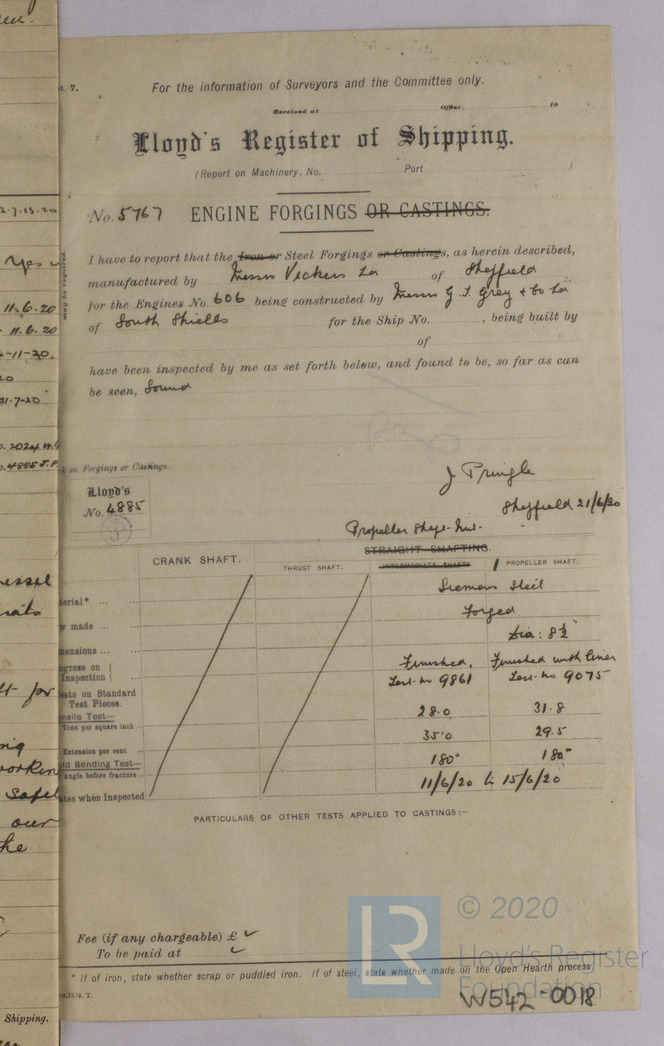 7.
For the information of Surveyors and the Committee only.
Received at Office, 19
Lloyd's Register of Shipping.
(Report on Machinery, No. Port )
No. 5767 ENGINE FORGINGS OR CASTINGS.
I have to report that the Iron or Steel Forgings or Castings, as herein described,
manufactured by Messrs Vickers Ld of Sheffield
for the Engines No. 606 being constructed by Messrs G. T. Grey & Co Ld
of South Shields for the Ship No. , being built by
of
have been inspected by me as set forth below, and found to be, so far as can
be seen, Sound
on Forgings or Castings.
J Pringle
Lloyd's
No. 4885
Sheffield 21/6/20
Propeller Shaft Nut.
STRAIGHT SHAFTING.
CRANK SHAFT. THRUST SHAFT. INTERMEDIATE SHAFTS 1 PROPELLER SHAFT.
terial* Siemens Steel
made Forged
mensions Dia: 8½"
ogress on Inspection Finished, Finished with liner
Test No 9861 Test No 9075
ests on Standard
Test Pieces.
nsile Test—
Tons per square inch 28.0 31.8
Extension per cent 35.0 29.5
old Bending Test—
Angle before fracture 180° 180°
ates when Inspected 11/6/20 to 15/6/20
PARTICULARS OF OTHER TESTS APPLIED TO CASTINGS:—
Fee (if any chargeable) £
To be paid at
* If of iron, state whether scrap or puddled iron. If of steel, state whether made on the Open Hearth process.
W542-0018
LR
© 2020
Lloyd's Register
Foundation
2.7.13.20
Yes
11.6.20
11.6.20
4-11-20.
20
21-7-20
2024
4885 J.P.
essel
for
ing
working
safel
our
he
Shipping.